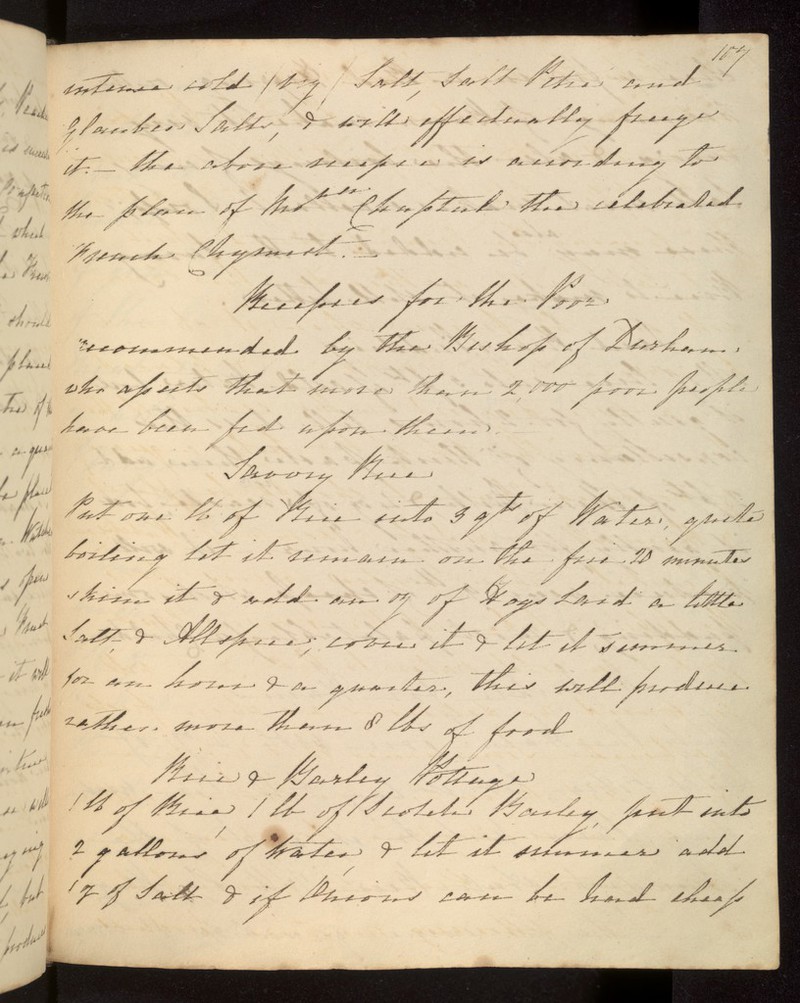 107
intense cold (viz) Salt, Salt Petre and
Glauber Salts, & will effectually freeze
it. — the above receipe is according to
the plan of Chaptal the celebrated
French Chymist. —
Receipes for the Poor
recommended by the Bishop of Durham,
who asserts that more than 2,000 poor people
have been fed upon them. —
Savory Rice
Put one lb of Rice into 3 qts of Water, quite
boiling let it remain on the fire 20 minutes
skim it & add an oz of Hogs Lard a little
Salt, & Allspice, cover it & let it simmer
for an hour & a quarter, this will produce
rather more than 8 lbs of food
Rice & Barley Pottage
1 lb of Rice, 1 lb of Scotch Barley, put into
2 gallons of Water, & let it simmer add
1 oz of Salt & if Onions can be had cheap